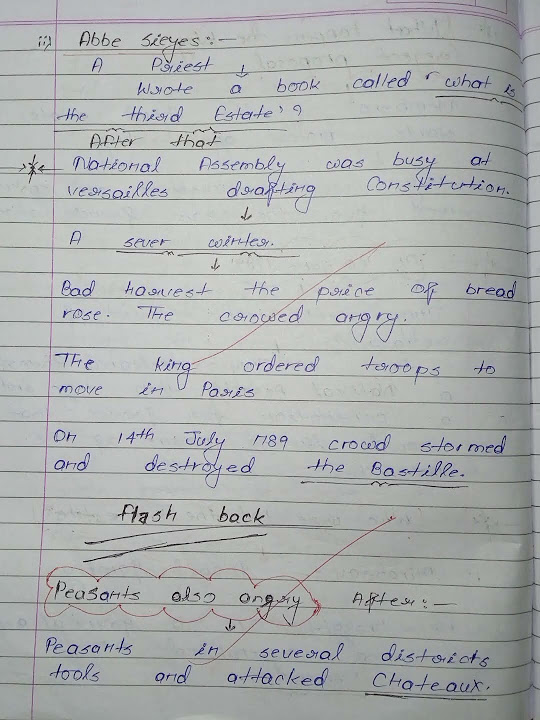 ii) Abbe Sieyes:-
A Priest ↓
Wrote a book called 'what is
the third Estate'?
After that
National Assembly was busy at
versailles drafting Constitution.
↓
A sever winter.
↓
Bad harvest the price of bread
rose. The crowed angry.
The king ordered troops to
move in Paris
On 14th July 1789 crowd stormed
and destroyed the Bastille.
flash back
Peasants also angry After:-
↓
Peasants in several districts
tools and attacked Chateaux.